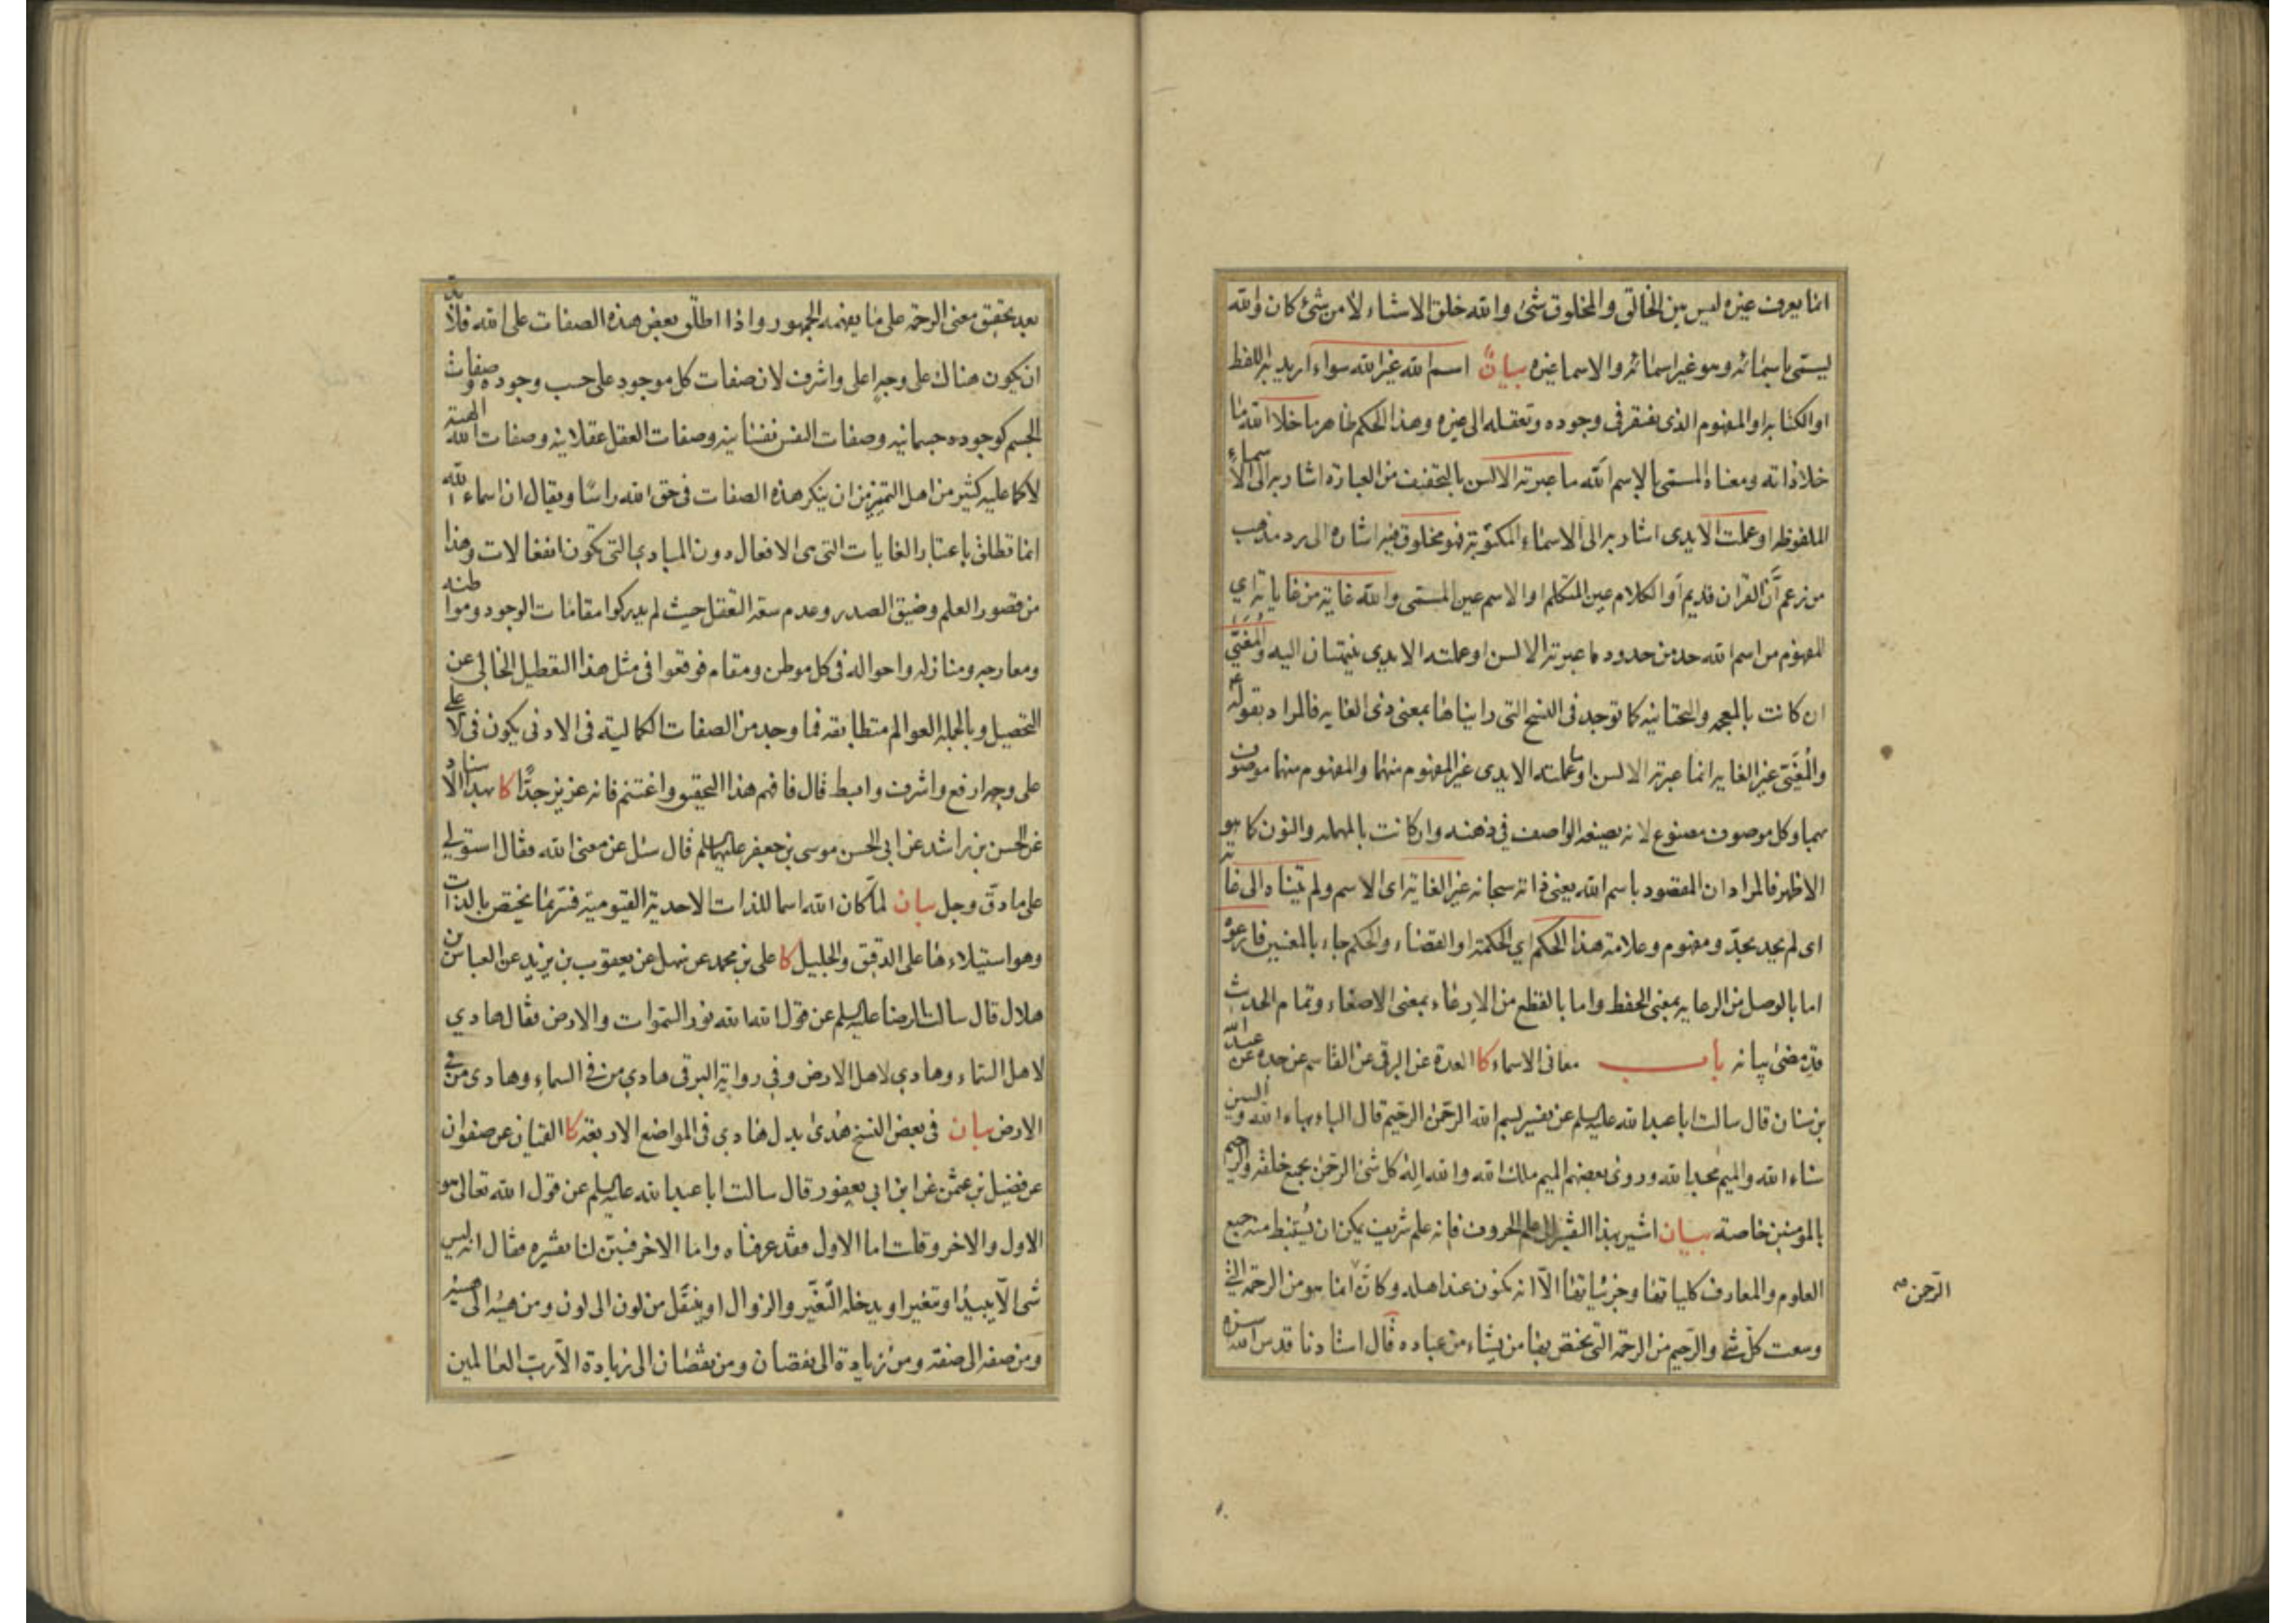 انما يعرف غيره ليس بين الخالق والمخلوق شئ والله خلق الاشياء لا من شئ كان والله
يسمى باسمائه وهو غير اسمائه والاسماء غيره بيان اسم الله غير الله سواء اريد به اللفظ
او الكتابة او المفهوم الذى يفتقر فى وجوده وتعقله الى غيره وهذا الحكم ظاهر ما خلا الله ما
خلا ذاته ومعناه المسمى بالاسم الله ما عبرته الالسن بالتخفيف من العبارة اشار به الى الاسماء
الملفوظه او عملت الايدى اشار به الى الاسماء المكتوبة فهو مخلوق فيه اشاره الى رد مذهب
من زعم أن القران قديم أو الكلام عين المتكلم او الاسم عين المسمى والله غاية من غاياته اي
المفهوم من اسم الله حد من حدود ما عبرته الالسن او عملته الايدى ينتهيان اليه والمغيى
ان كانت بالمعجمه والتحتانيه كما توجد فى النسخ التى رايناها بمعنى ذى الغايه فالمراد بقوله ع
والمغيى غير الغايه انما عبرته الالسن او ما عملته الايدى غير المفهوم منهما والمفهوم منهما موصوف
بهما وكل موصوف مصنوع لانه يصنعه الواصف في ذهنه وان كانت بالمهمله والنون كما هو
الاظهر فالمراد ان المقصود باسم الله يعنى ذاته سبحانه غير الغاية اى الاسم ولم يتناه الى غاية
اى لم يحد بحدّ ومفهوم وعلامة هذا الحكم اي الحكمة او القضاء والحكم جاء بالمعنيين فارعوه
اما بالوصل من الرعايه بمعنى الحفظ واما بالقطع من الارعاء بمعنى الاصغاء وتمام الحديث
قد مضى بيانه باب معانى الاسماء كا العدة عن البرقى عن القاسم عن جده عن عبد الله
بن سنان قال سالت ابا عبد الله عليه السلم عن تفسير بسم الله الرحمن الرحيم قال الباء بهاء الله والسين
سناء الله والميم مجد الله وروى بعضهم الميم ملك الله والله اله كل شئ الرحمن بجميع خلقه والرحيم
بالمؤمنين خاصة بيان اشير بهذا التفسير الى علم الحروف فانه علم شريف يمكن ان يستنبط منه جميع
العلوم والمعارف كلياتها وجزئياتها الّا انه مكنون عند اهله وكانّ انما هو من الرحمة التي
الرّحمن صح
وسعت كلّ شئ والرّحيم من الرحمة التى يختص بها من يشاء من عباده قال استادنا قدس الله سره
بعد تحقيق معنى الرحمة على ما يفهمه الجمهور واذا اطلق بعض هذه الصفات على الله فلا بدّ
ان يكون هناك على وجه اعلى واشرف لان صفات كل موجود على حسب وجوده وصفات
الجسم كوجوده جسمانيه وصفات النفس نفسانيه وصفات العقل عقلانيه وصفات الله الهية
لا كما عليه كثير من اهل التميز من ان ينكر هذه الصفات فى حق الله راسًا ويقال ان اسماء الله
انما تطلق باعتبار الغايات التى هى الافعال دون المبادى التى تكون انفعالات وهذا
من قصور العلم وضيق الصدر وعدم سعة التعقل حيث لم يدركوا مقامات الوجود ومواطنه
ومعارجه ومنازله واحواله فى كل موطن ومقام فوقعوا فى مثل هذا التعطيل الخالي عن
التحصيل وبالجمله العوالم متطابقه فما وجد من الصفات الكمالية فى الادنى يكون فى الاعلى
على وجه ارفع واشرف وابسط قال فافهم هذا التحقيق واغتنم فانه عزيز جدًّا كا بهذا الاسناد
عن الحسن بن راشد عن ابي الحسن موسى بن جعفر عليهما السلم قال سئل عن معنى الله فقال استولي
على ما دقّ وجل بيان لمّا كان الله اسما للذات الاحدية القيومية فسّر بما يختص بالذات
وهو استيلاءها على الدقيق والجليل كا على بن محمد عن سهل عن يعقوب بن يزيد عن العباس بن
هلال قال سالت الرضا عليه السلم عن قول الله الله نور السموات والارض فقال هادي
لاهل السماء وهادي لاهل الارض وفي رواية البرقى هادي من فى السماء وهادى من فى
الارض بيان فى بعض النسخ هدى بدل هادي فى المواضع الاربعة كا القميان عن صفوان
عن فضيل بن عثمن عن ابن ابي يعفور قال سالت ابا عبد الله عليه السلم عن قول الله تعالى هو
الاول والاخر وقلت اما الاول فقد عرفناه واما الاخر فبيّن لنا تفسيره فقال انه ليس
شئ الّا يبيد او يتغير او يدخله التغيّر والزوال او ينتقل من لون الى لون ومن هيئه الى هيئة
ومن صفه الى صفة ومن زيادة الى نقصان ومن نقصان الى زيادة الّا ربّ العالمين